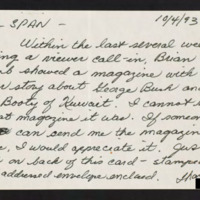 - SPAN - 10/4/93
Within the last several wee
ing a viewer call-in, Brian
b showed a magazine with
r story about George Bush and
Booty of Kuwait. I cannot
at magazine it was. If someo
can send me the magazine
e, I would appreciate it. Jus
on back of this card - stamped
addressed envelope enclosed.